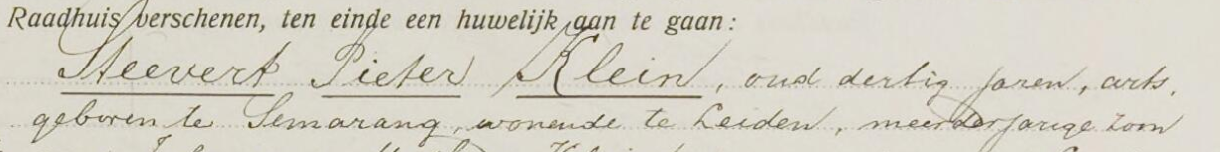 Raadhuis verschenen, ten einde een huwelijk aan te gaan:
Steevert Pieter Klein, oud dertig jaren, arts,
geboren te Semarang, wonende te Leiden, meerderjarige zoon